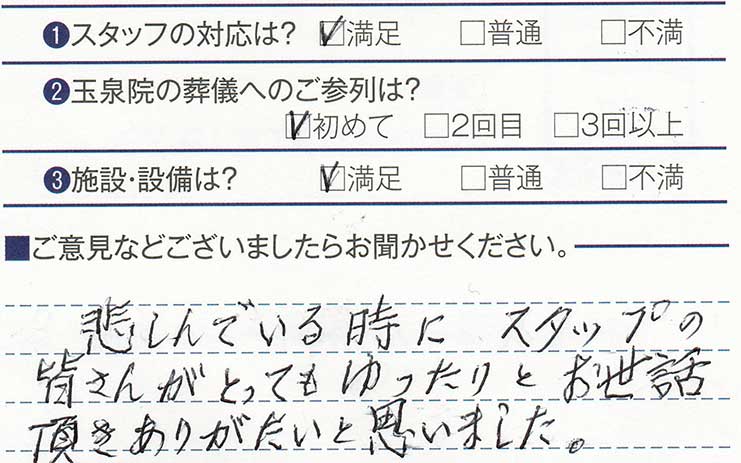 ❶スタッフの対応は? ☑満足 □普通 □不満
❷玉泉院の葬儀へのご参列は?
☑初めて □2回目 □3回以上
❸施設・設備は? ☑満足 □普通 □不満
■ご意見などございましたらお聞かせください。
悲しんでいる時に スタップの
皆さんがとってもゆったりとお世話
頂きありがたいと思いました。